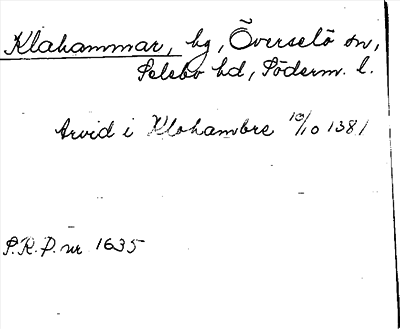 Klahammar, bg, Överselö sn,
Selebo hd, Söderm. l.
Arvid i Klohambre 10/10 1381
S.R.P. nr 1635